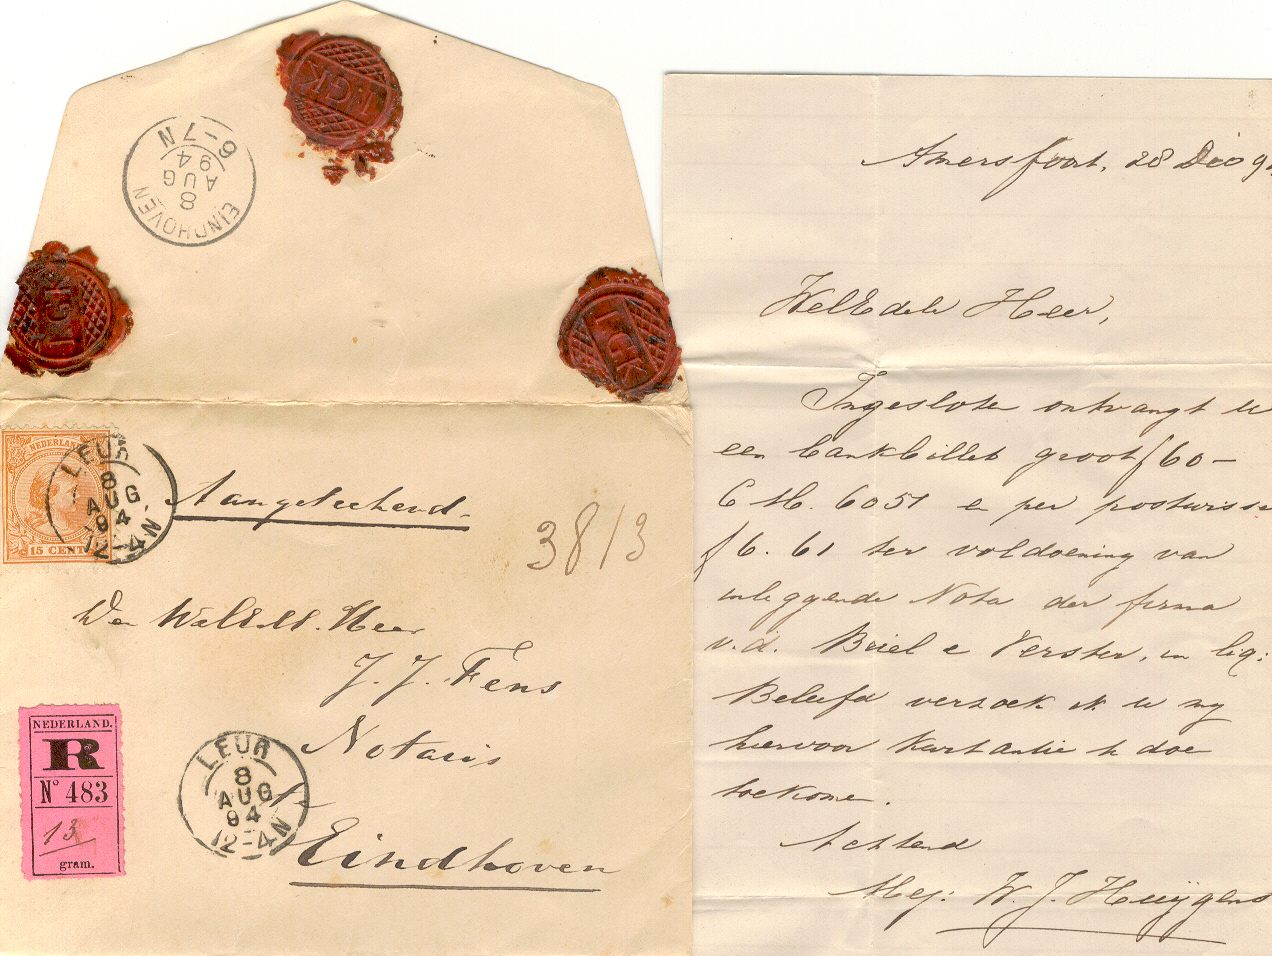 6-7N
94
AUG
8
EINDHOVEN
NEDERLAND
15 CENT
LEUR
8
AUG
94
12-4N
Aangeteekend.
3813
Den WelEd. Heer
J. J. Fens
Notaris
Eindhoven
LEUR
8
AUG
94
12-4N
NEDERLAND.
R
No 483
13
gram.
Amersfoort, 28
WelEdele Heer,
Ingesloten ontvangt u
een bankbillet groot f 60-
6051 en per postwisse
f 6.61 ter voldoening van
inleggende Nota der firma
v.d. Briel & Verster, in liq:
Beleefd verzoek ik u my
hiervoor kwitantie te doe
toekomen.
Achtend
Mej: W. J. Huijgens